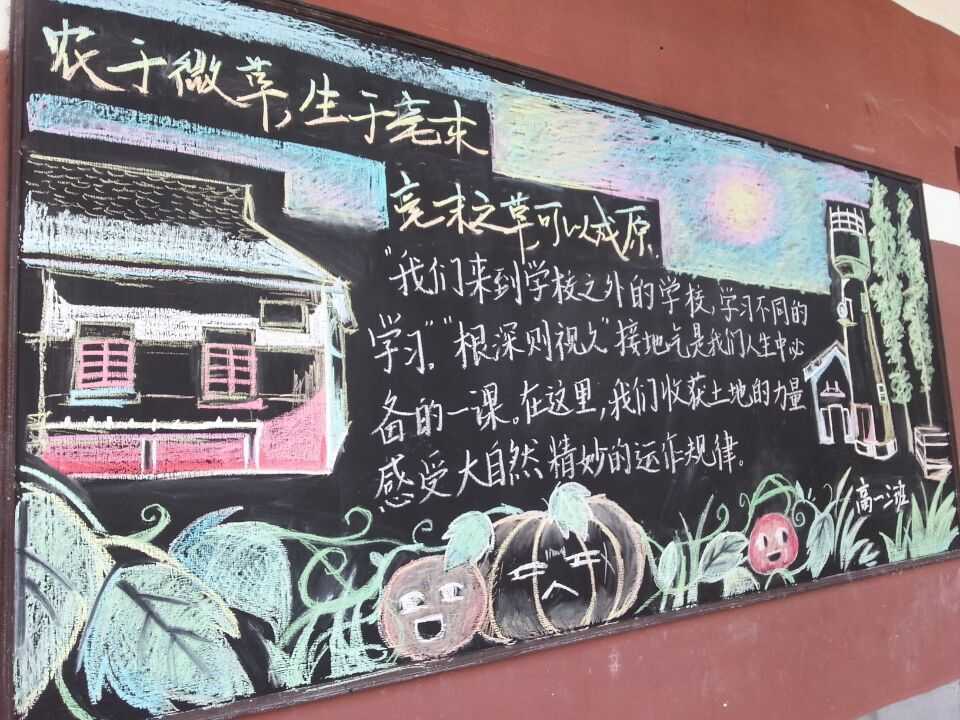 农于微草,生于毫末
毫末之草,可以成原
“我们来到学校之外的学校,学习不同的
学习。”“根深则视久”接地气是我们人生中必
备的一课。在这里,我们收获土地的力量
感受大自然精妙的运作规律。
高一三班